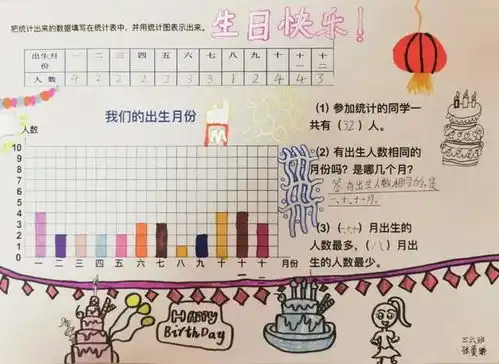 把统计出来的数据填写在统计表中，并用统计图表示出来。
生日快乐！
出生月份 一 二 三 四 五 六 七 八 九 十 十一 十二
人数 4 2 2 2 2 3 3 1 2 4 4 3
我们的出生月份
人数
10
9
8
7
6
5
4
3
2
1
0
一 二 三 四 五 六 七 八 九 十 十一 十二 月份
(1) 参加统计的同学一
共有（32）人。
(2) 有出生人数相同的
月份吗？是哪几个月？
答:有出生人数相同的,是
一、十、十一月。
(3)（一、十、十一）月出生的
人数最多，（八）月出
生的人数最少。
HAPPY
BirthDay
三六班